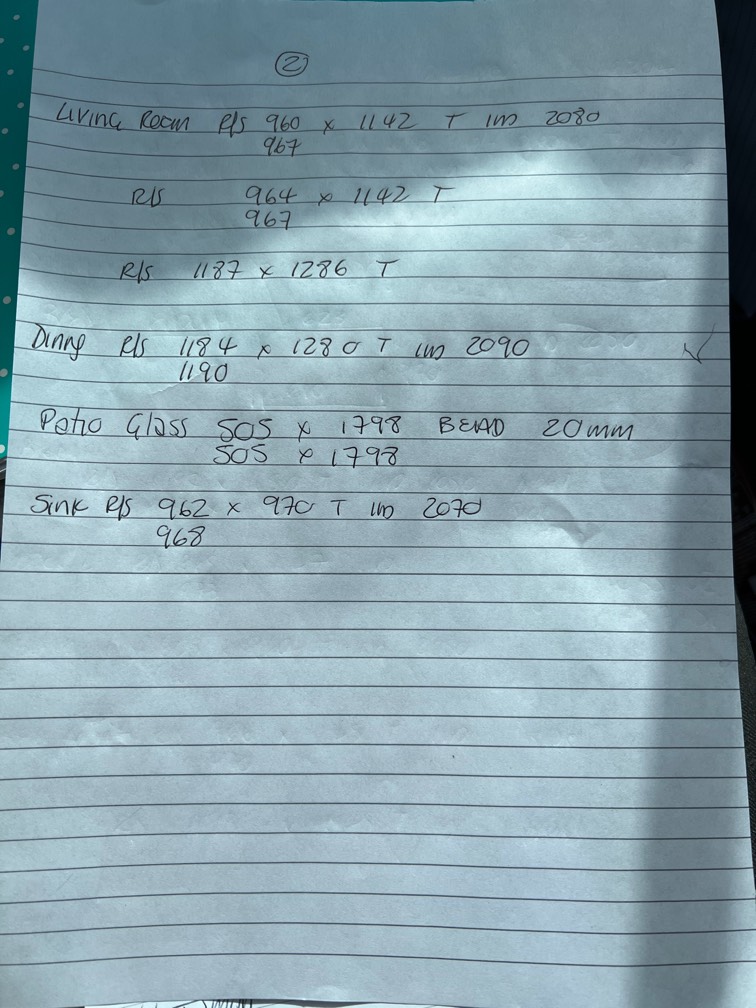 2
Living Room R/S 960 x 1142 T IM 2080
967
R/S 964 x 1142 T
967
R/S 1187 x 1286 T
Dining R/S 1184 x 1280 T IM 2090
1190
Patio Glass 505 x 1798 BEAD 20mm
505 x 1798
Sink R/S 962 x 970 T IM 2070
968